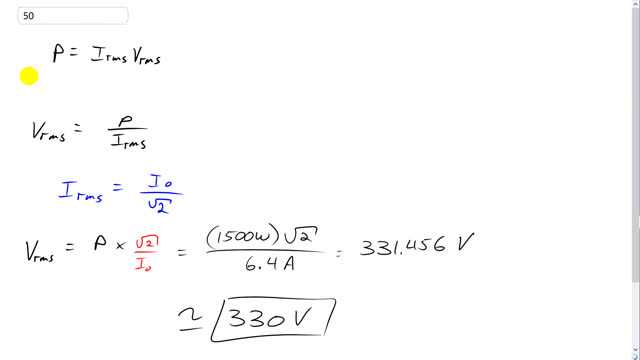 50
P = Irms Vrms
Vrms = P / Irms
Irms = I0 / √2
Vrms = P × √2 / I0 = (1500W)√2 / 6.4 A = 331.456 V
≃ 330 V